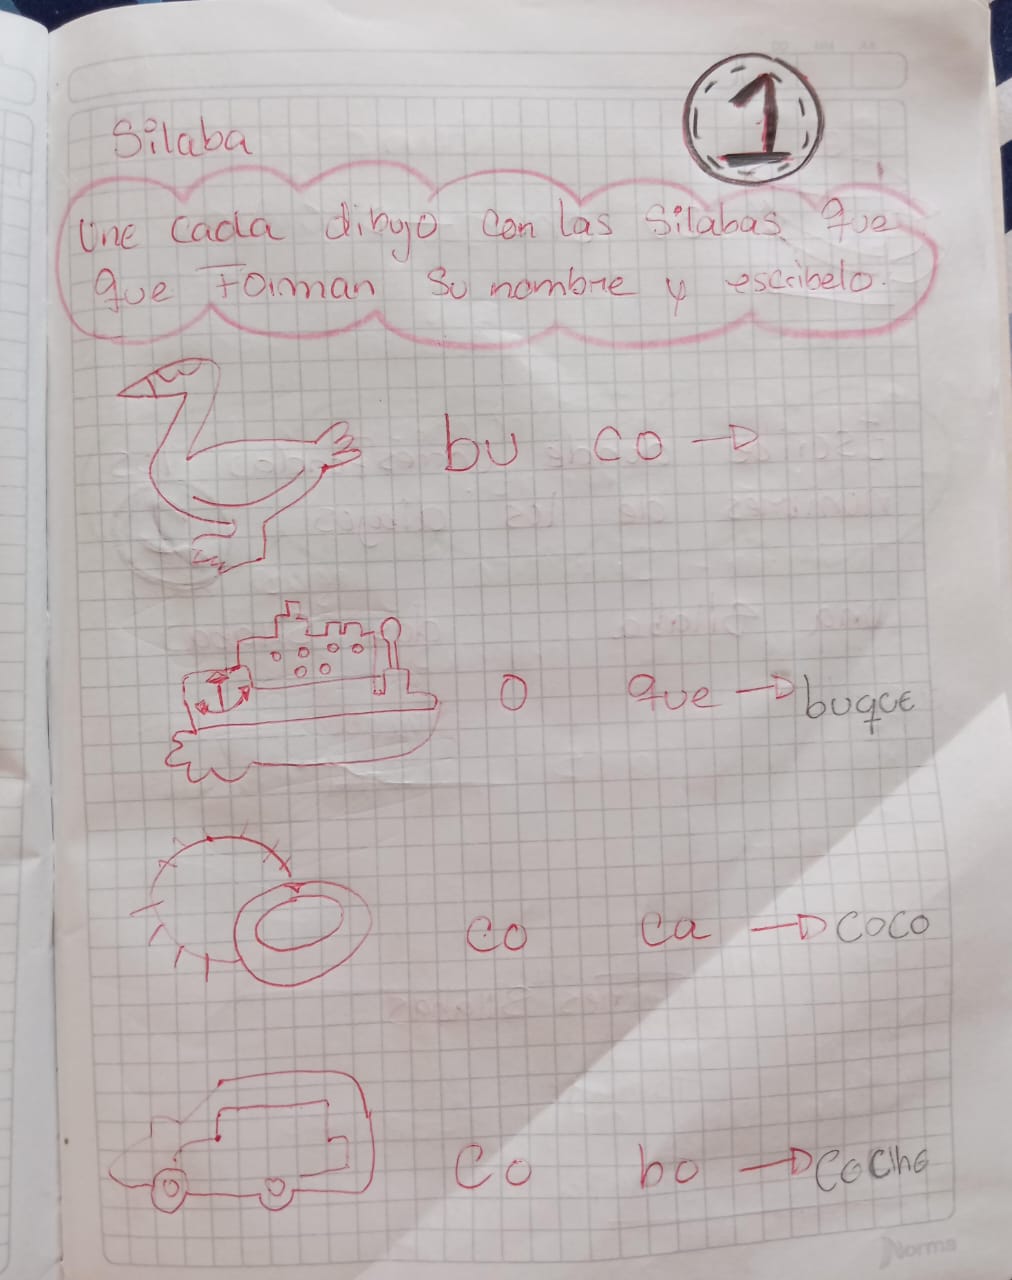 1
Silaba
Une cada dibujo con las silabas que
que Forman su nombre y escribelo.
bu co
o que buque
co ca coco
co bo coche
Norma